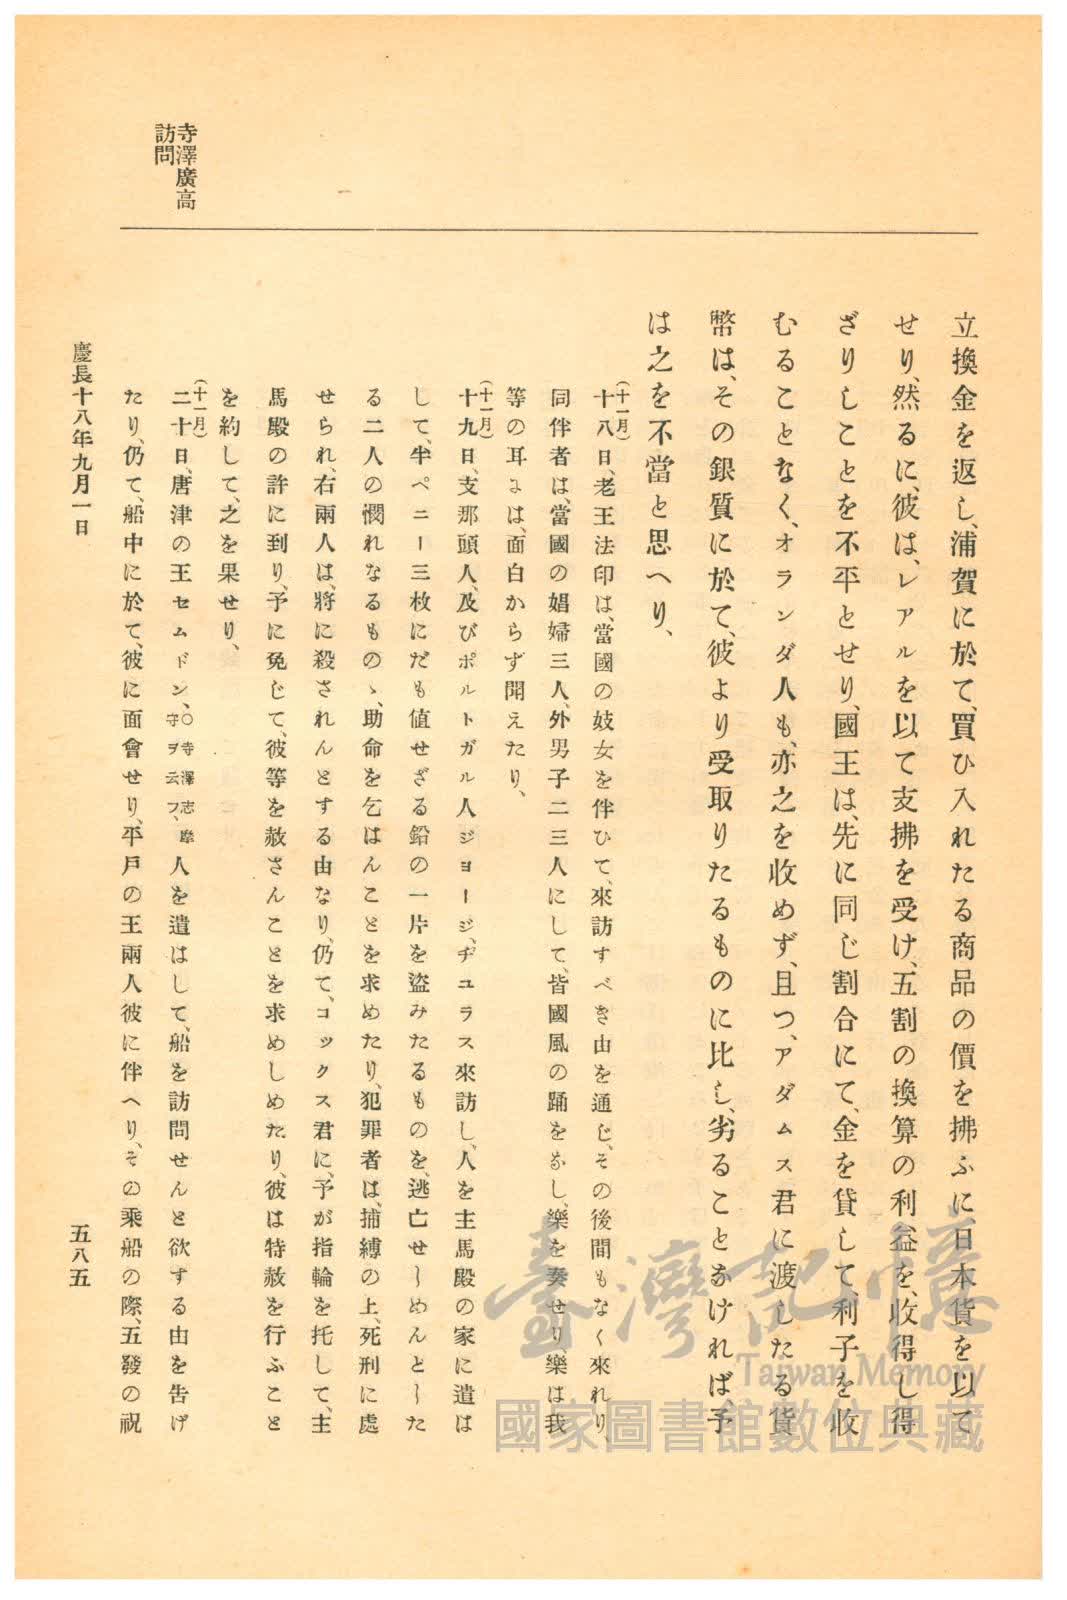 寺澤廣高
訪問
立換金を返し、浦賀に於て、買ひ入れたる商品の價を拂ふに日本貨を以て
せり、然るに、彼は、レアルを以て支拂を受け、五割の換算の利益を、收得し得
ざりしことを不平とせり、國王は、先に同じ割合にて、金を貸して、利子を收
むることなく、オランダ人も、亦之を收めず、且つ、アダムス君に渡したる貨
幣は、その銀質に於て、彼より受取りたるものに比し、劣ることなければ、予
は之を不當と思へり、
(十一月)
十八日、老王法印は、當國の妓女を伴ひて、來訪すべき由を通じ、その後間もなく來れり、
同伴者は、當國の娼婦三人、外男子二三人にして、皆國風の踊をなし、樂を奏せり樂は我
等の耳には、面白からず聞えたり、
(十一月)
十九日、支那頭人、及びポルトガル人ジヨージ、ヂユラス來訪し、人を主馬殿の家に遣は
して、半ペニー三枚にだも値せざる鉛の一片を盜みたるものを、逃亡せしめんとした
る二人の憫れなるものゝ、助命を乞はんことを求めたり、犯罪者は、捕縛の上、死刑に處
せられ、右兩人は、將に殺されんとする由なり、仍て、コックス君に、予が指輪を托して、主
馬殿の許に到り、予に免じて、彼等を赦さんことを求めしめたり、彼は特赦を行ふこと
を約して、之を果せり、
(十一月)
二十日、唐津の王セムドン、〇寺澤志摩守ヲ云フ、人を遣はして、船を訪問せんと欲する由を告げ
たり、仍て、船中に於て、彼に面會せり、平戸の王兩人彼に伴へり、その乘船の際、五發の祝
慶長十八年九月一日
五八五
臺灣記憶
Taiwan Memory
國家圖書館數位典藏